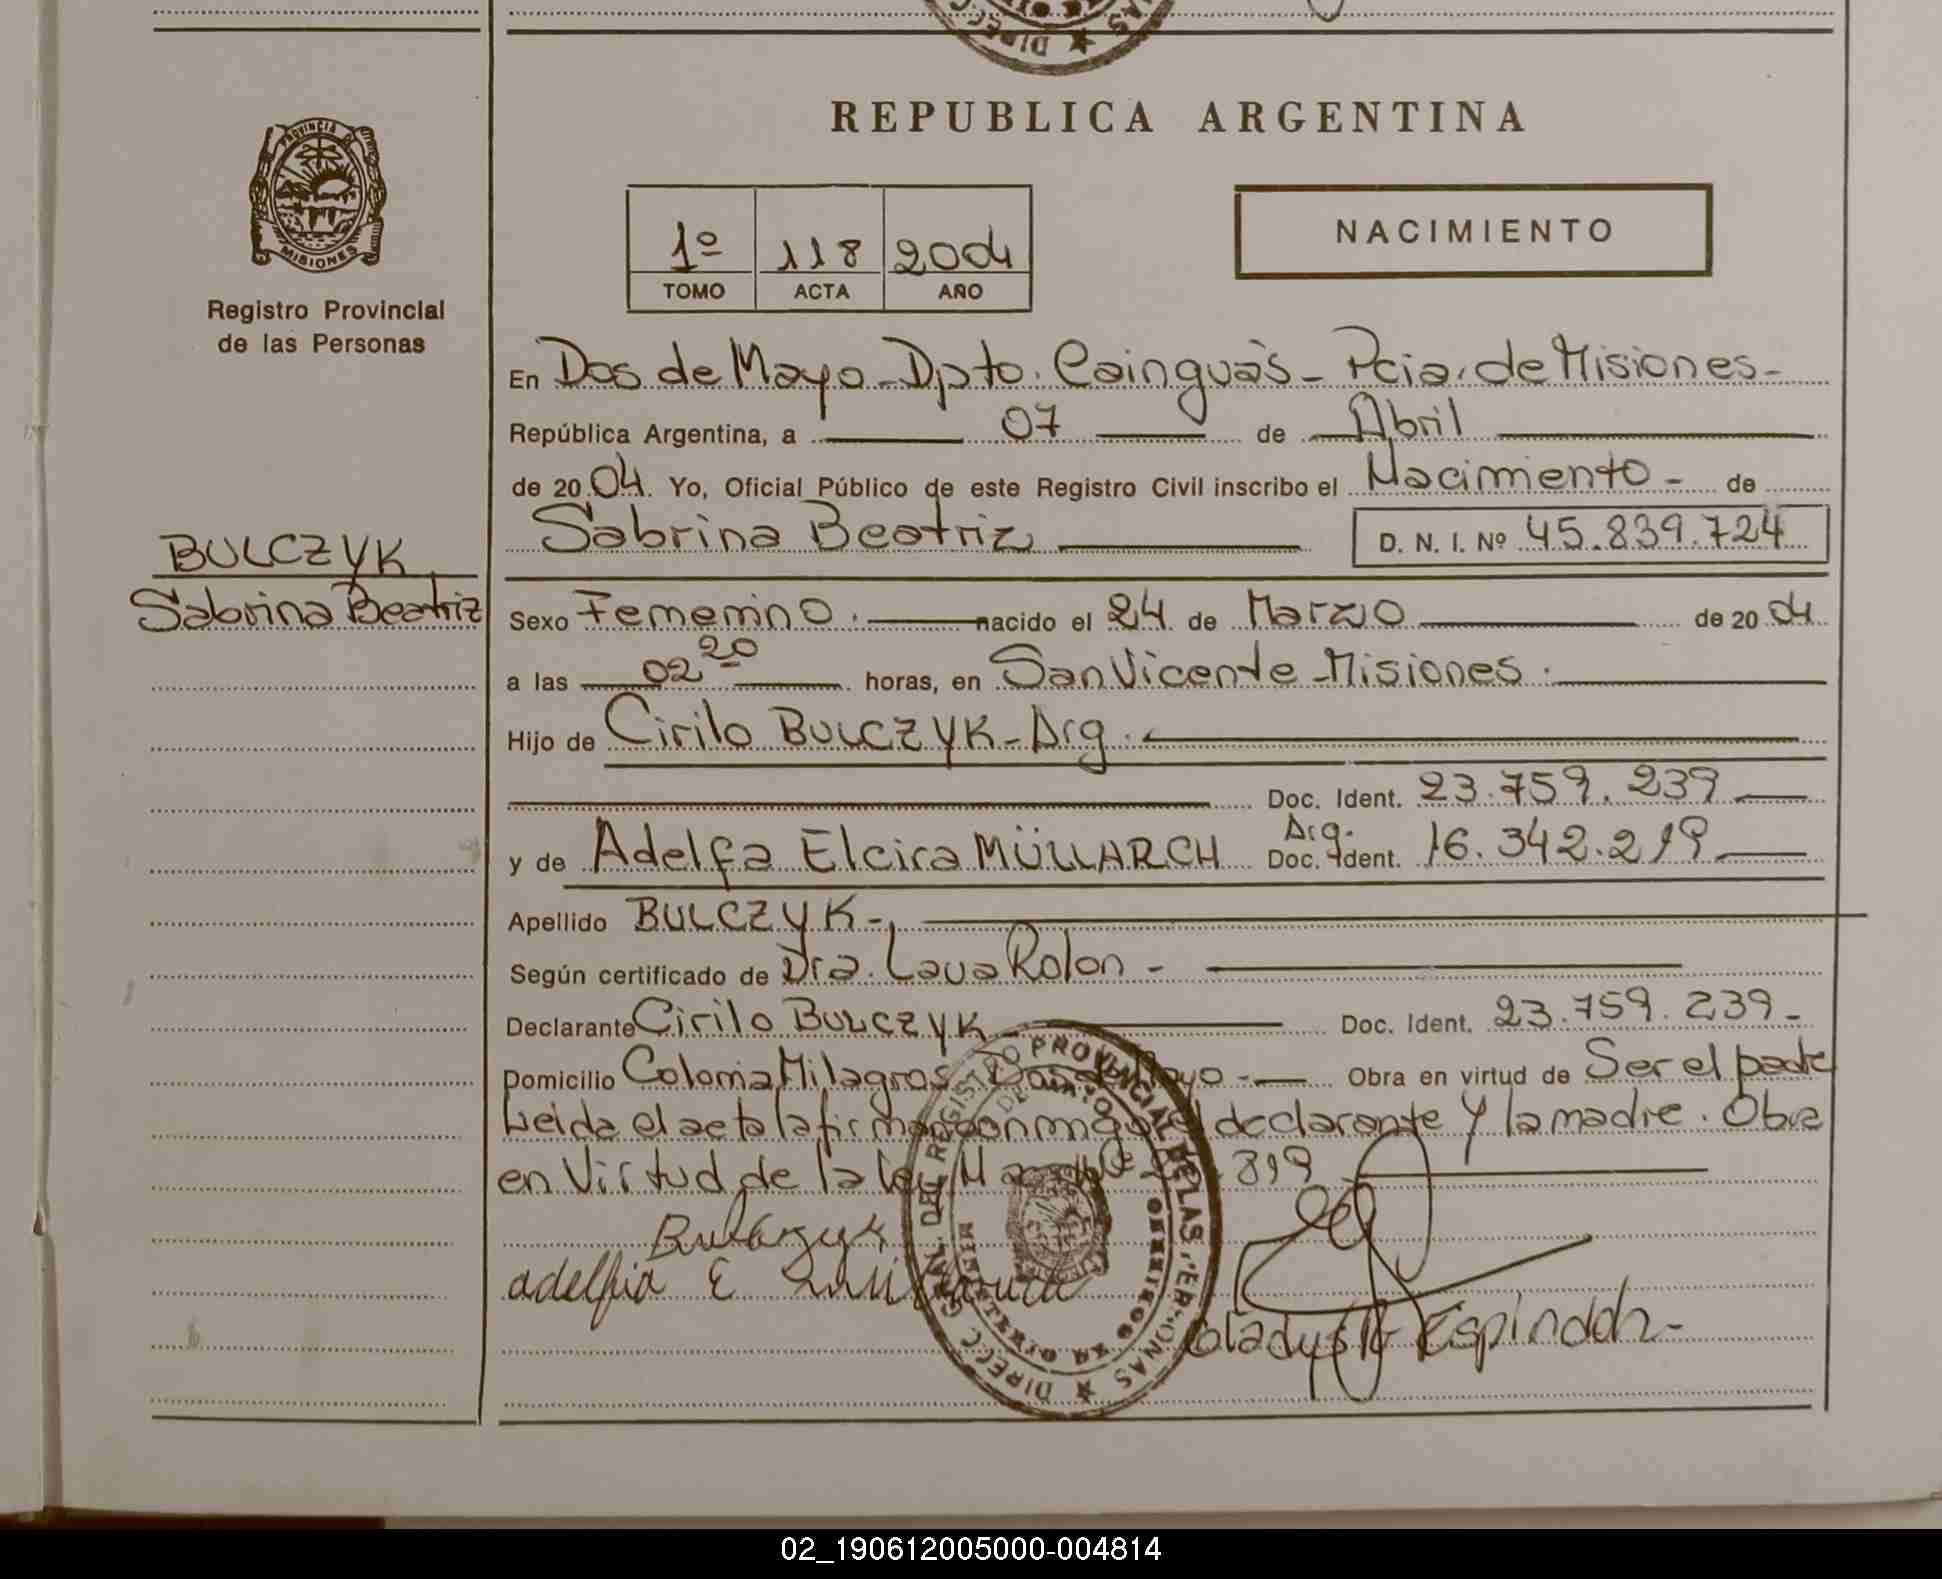 REPUBLICA ARGENTINA
PROVINCIA DE
MISIONES
Registro Provincial
de las Personas
1º 118 2004
TOMO ACTA AÑO
NACIMIENTO
En Dos de Mayo - Dpto. Cainguás - Pcia. de Misiones -
República Argentina, a 07 de Abril
de 2004. Yo, Oficial Público de este Registro Civil inscribo el Nacimiento - de
Sabrina Beatriz D. N. I. Nº 45.839.724
BULCZYK
Sabrina Beatriz
Sexo Femenino. nacido el 24 de Marzo de 2004
a las 02 20 horas, en San Vicente - Misiones.
Hijo de Cirilo BULCZYK - Arg.
Doc. Ident. 23.759.239
y de Adelfa Elcira MÜLLARCH Arg. Doc. Ident. 16.342.219
Apellido BULCZYK -
Según certificado de Dra. Laua Rolon -
Declarante Cirilo BULCZYK Doc. Ident. 23.759.239 -
Domicilio Colonia Milagros Dos de Mayo - Obra en virtud de Ser el padre
Leida el acta la firman conmigo el declarante y la madre. Obra
en Virtud de la ley 819
Bulczyk
adelfia E
Gladys Espindola -
DIRECC. GRAL. DEL REGISTRO PROVINCIAL DE LAS PERSONAS
MINISTERIO DE GOBIERNO
02_190612005000-004814